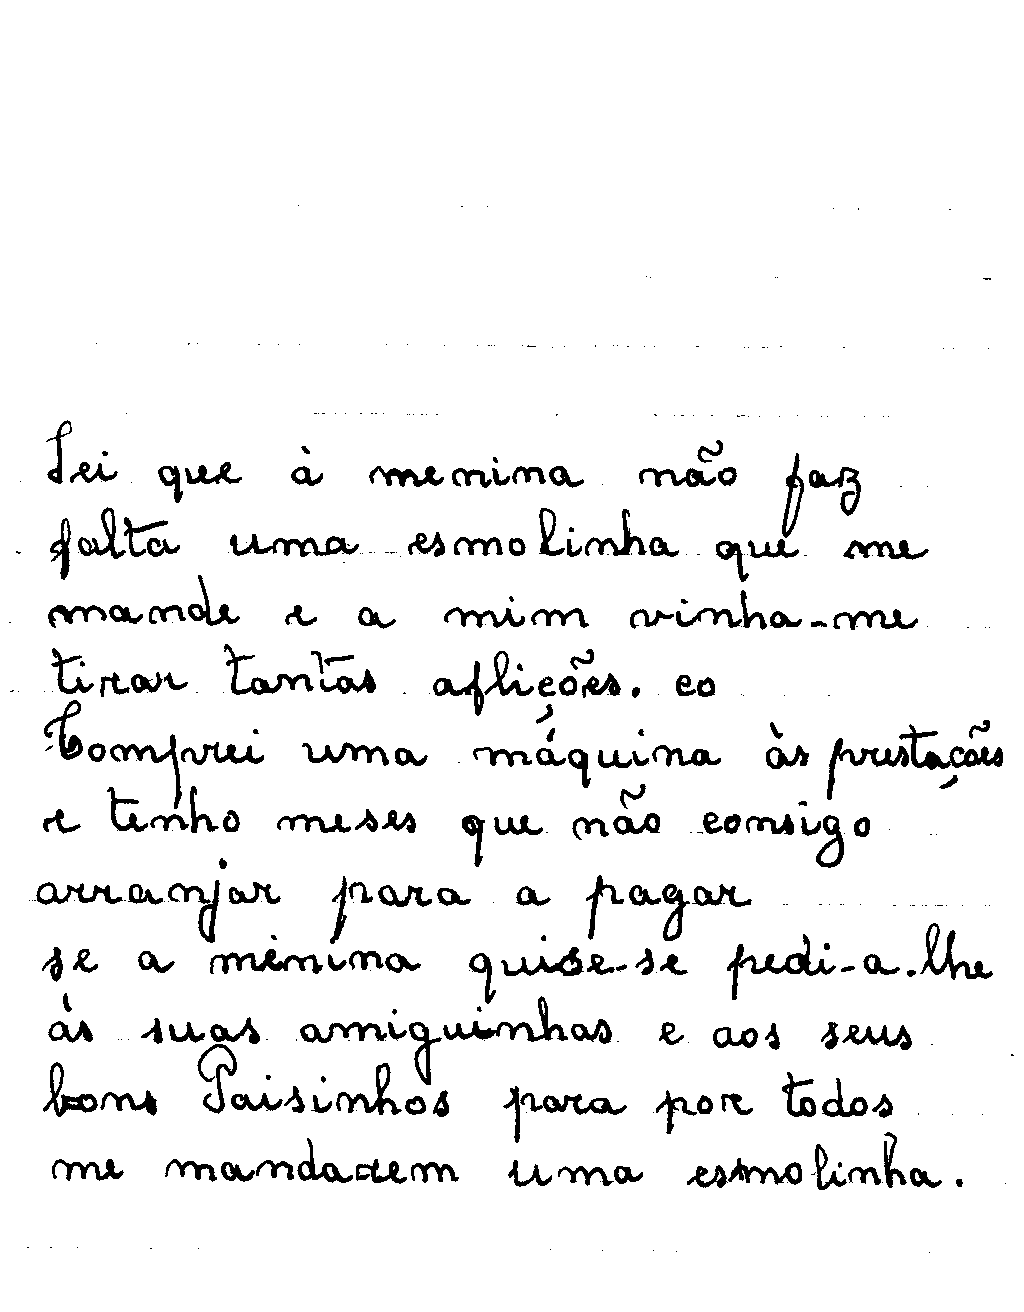 Sei que à menina não faz
falta uma esmolinha que me
mande e a mim vinha-me
tirar tantas aflições. eo
Comprei uma máquina às prestações
e tenho meses que não consigo
arranjar para a pagar
se a menina quise-se pedi-a-lhe
ás suas amiguinhas e aos seus
bons Paisinhos para por todos
me mandarem uma esmolinha.